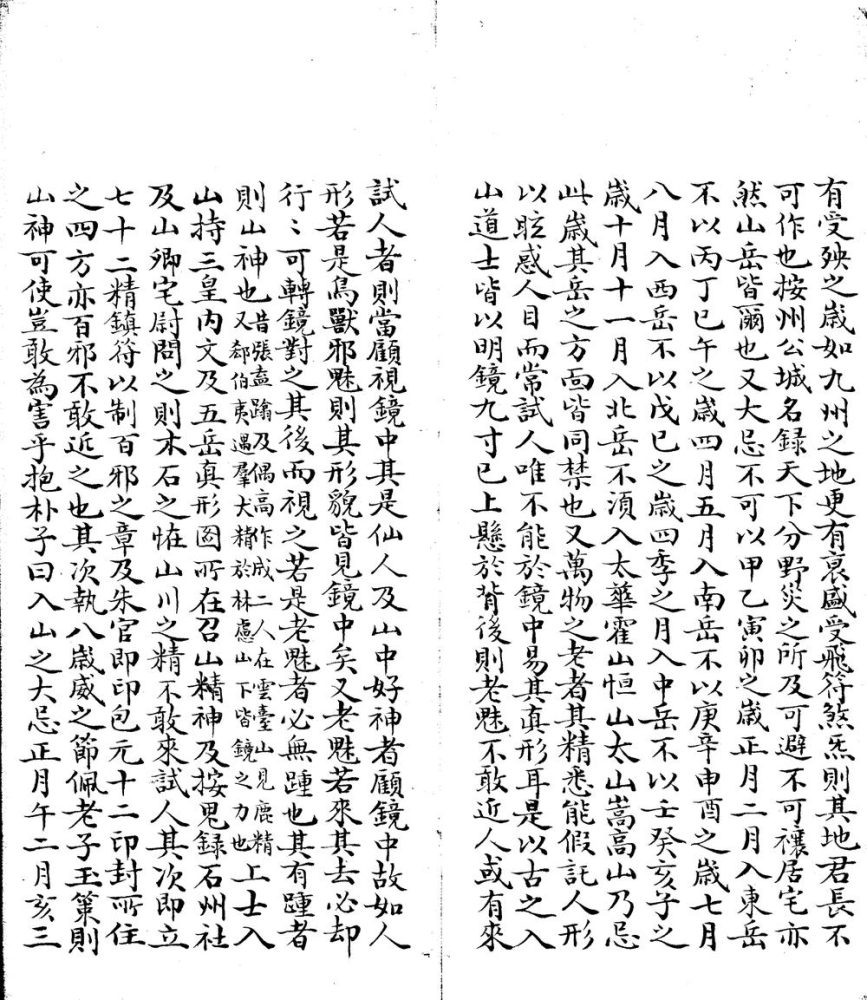 有受殃之歲如九州之地更有衰盛受飛符煞炁則其地君長不
可作也按州公城名録天下分野災之所及可避不可禳居宅亦
然山岳皆爾也又大忌不可以甲乙寅卯之歲正月二月入東岳
不以丙丁巳午之歲四月五月入南岳不以庚辛申酉之歲七月
八月入西岳不以戊己之歲四季之月入中岳不以壬癸亥子之
歲十月十一月入北岳不須入太華霍山恒山太山嵩高山乃忌
此歲其岳之方面皆同禁也又萬物之老者其精悉能假託人形
以眩惑人目而常試人唯不能於鏡中易其真形耳是以古之入
山道士皆以明鏡九寸已上懸於背後則老魅不敢近人或有來
試人者則當顧視鏡中其是仙人及山中好神者顧鏡中故如人
形若是鳥獸邪魅則其形貌皆見鏡中矣又老魅若來其去必却
行〻可轉鏡對之其後而視之若是老魅者必無踵也其有踵者
則山神也昔張盍蹹及偶高作成二人在雲臺山見鹿精
又郄伯夷遇羣犬精於林慮山下皆鏡之力也上士入
山持三皇内文及五岳真形圖所在召山精神及按鬼録石州社
及山卿宅尉問之則木石之恠山川之精不敢來試人其次即立
七十二精鎮符以制百邪之章及朱官即印包元十二印封所住
之四方亦百邪不敢近之也其次執八歲威之節佩老子玉策則
山神可使豈敢為害乎抱朴子曰入山之大忌正月午二月亥三